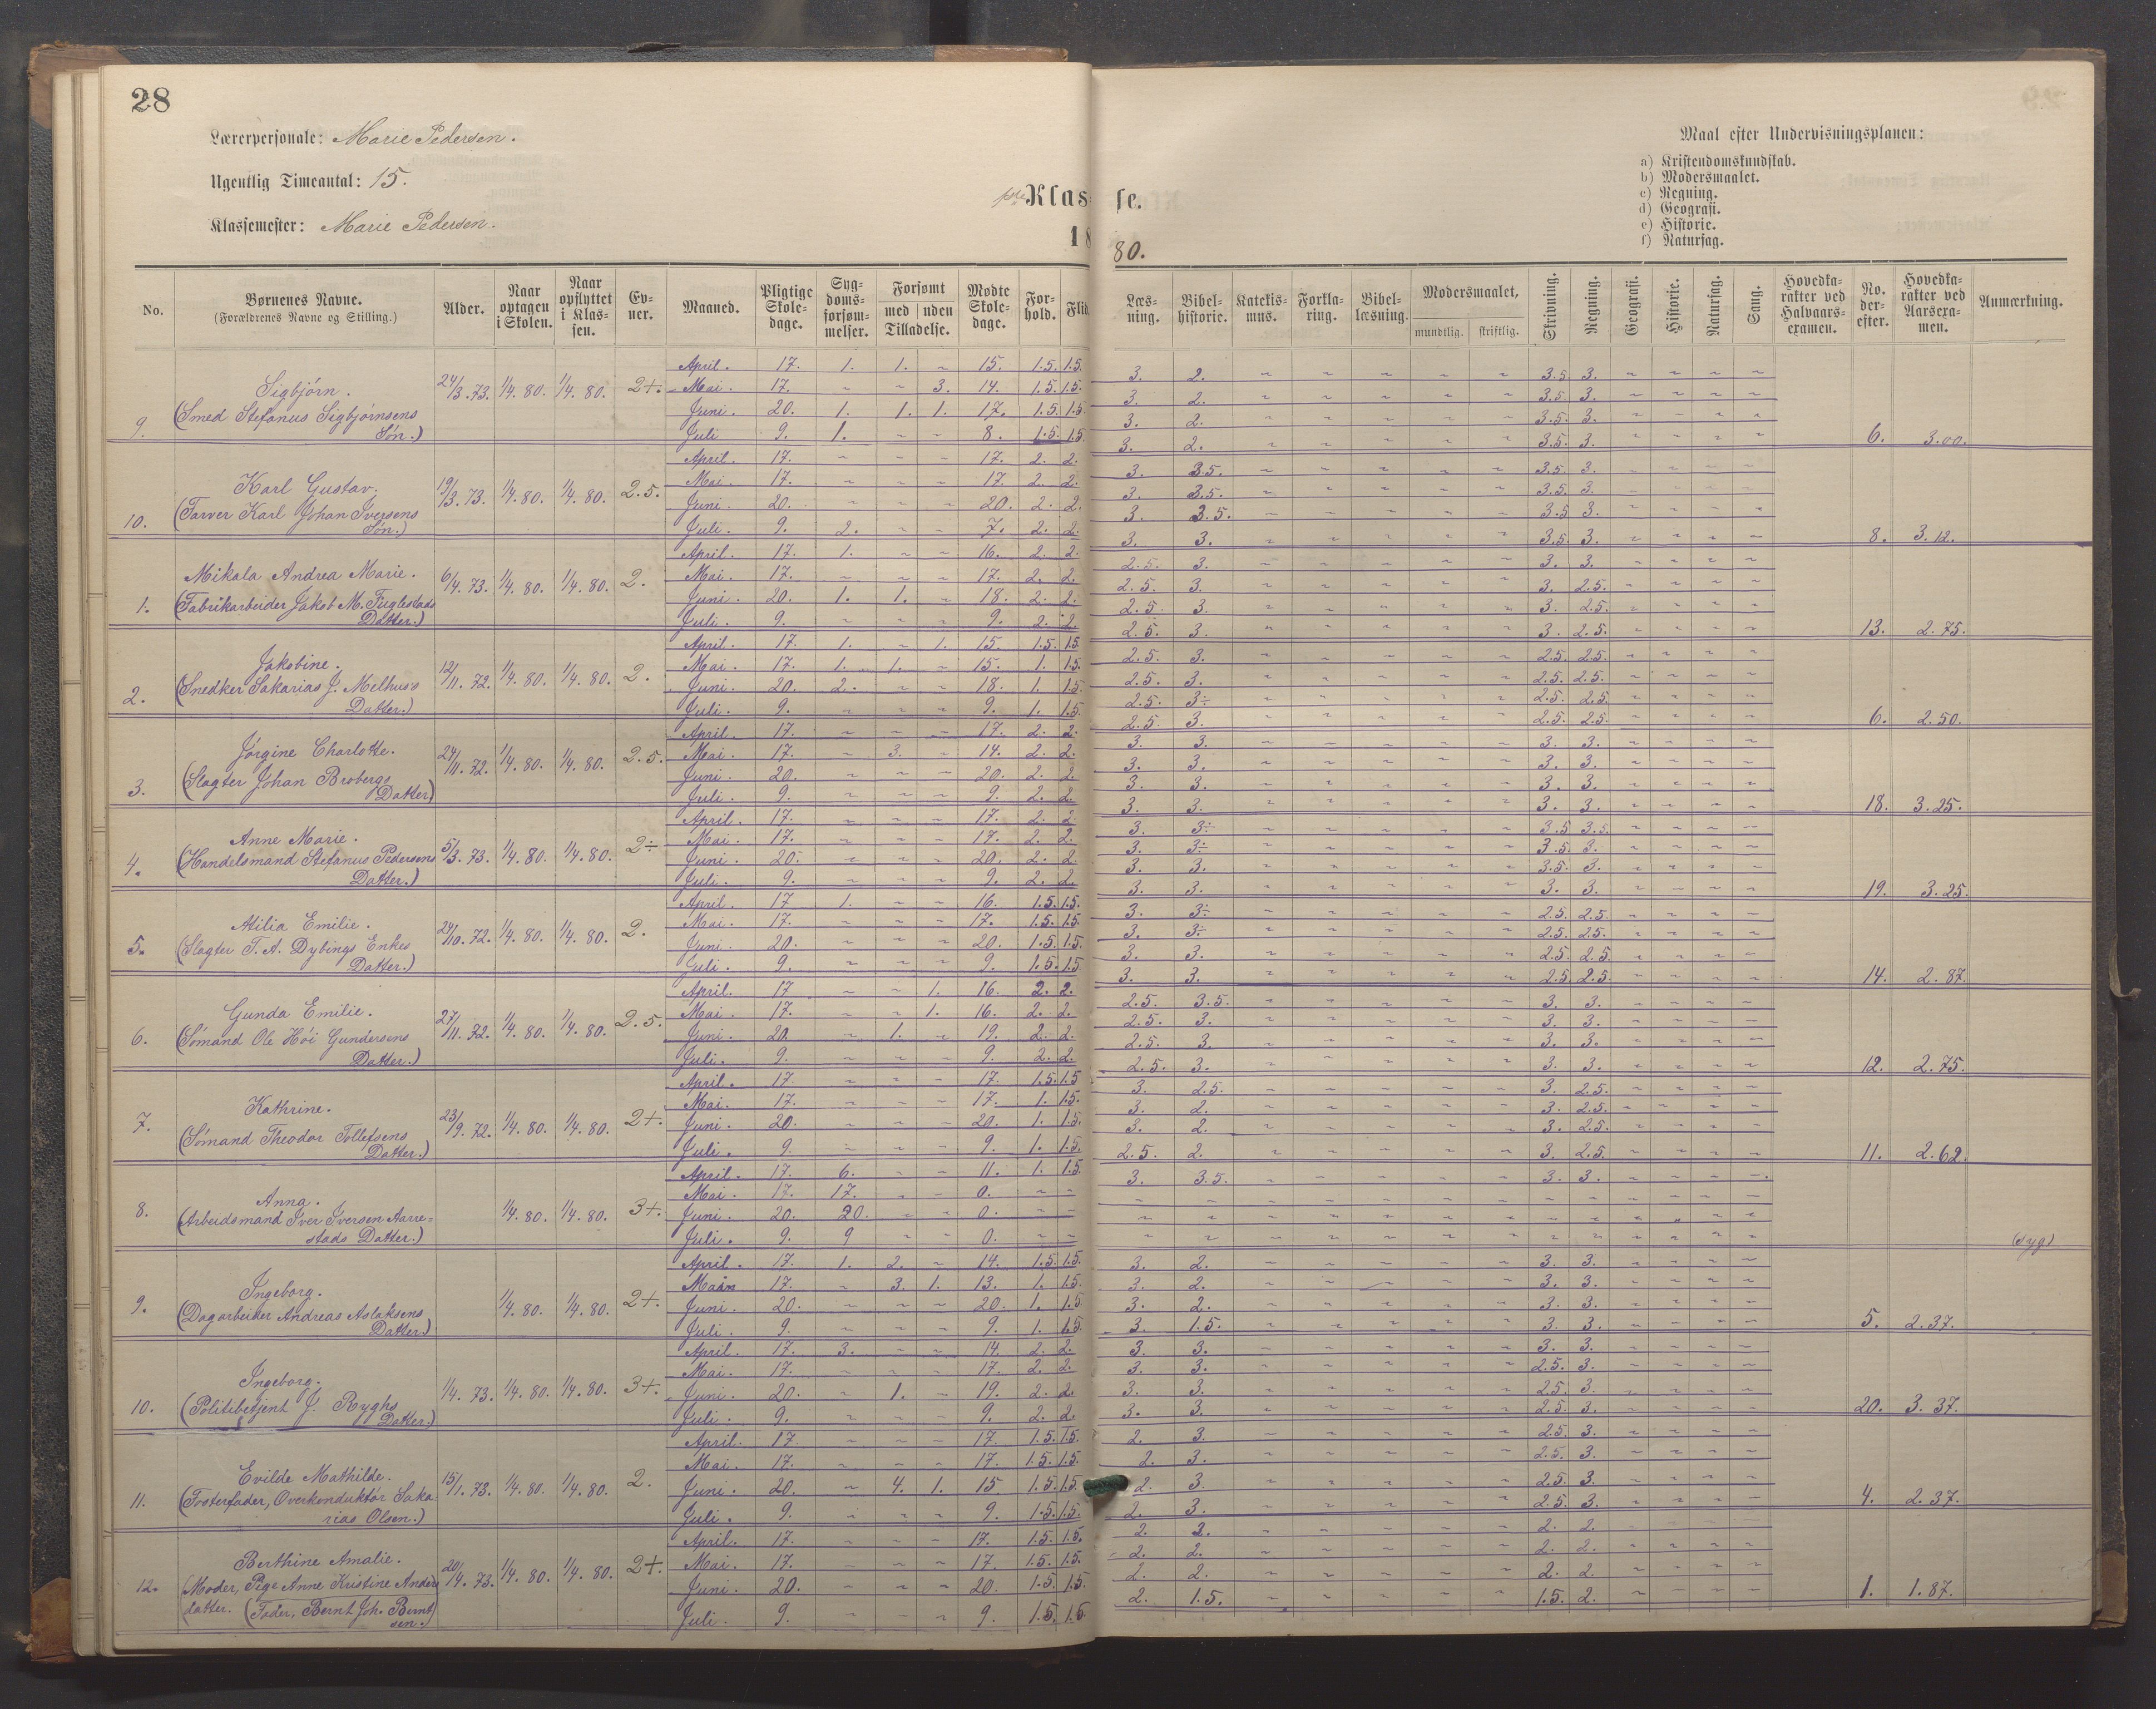 28
Lærerpersonale: Marie Pedersen.
Ugentlig Timeantal: 15.
Klassemester: Marie Pedersen.
Klasse.
1880.
Maal efter Undervisningsplanen:
a) Kristendomskundskab.
b) Modersmaalet.
c) Regning.
d) Geografi.
e) Historie.
f) Naturfag.
No. | Børnenes Navne. (Forældrenes Navne og Stilling.) | Alder. | Naar optagen i Skolen. | Naar opflyttet i Klassen. | Evner. | Maaned. | Pligtige Skoledage. | Sygdomsforsømmelser. | Forsømt med / uden Tilladelse. | Mødte Skoledage. | Forhold. | Flid. | Læsning. | Bibelhistorie. | Katekismus. | Forklaring. | Bibellæsning. | Modersmaalet, mundtlig. | skriftlig. | Skrivning. | Regning. | Geografi. | Historie. | Naturfag. | Sang. | Hovedkarakter ved Halvaarsexamen. | No. derefter. | Hovedkarakter ved Aarsexamen. | Anmærkning.
April. 17. 1. 1. ~ 15. 1.5. 1.5. 3. 2. ~ ~ ~ ~ ~ 3.5. 3. ~ ~ ~ ~
Sigbjørn. 24/3.73. 1/4.80. 1/4.80. 2+. Mai. 17. ~ ~ 3. 14. 1.5. 1.5. 3. 2. ~ ~ ~ ~ ~ 3.5. 3. ~ ~ ~ ~
(Smed Stefanus Sigbjørnsens Juni. 20. 1. 1. 1. 17. 1.5. 1.5. 3. 2. ~ ~ ~ ~ ~ 3.5. 3. ~ ~ ~ ~
9. Søn.) Juli 9. 1. ~ ~ 8. 1.5. 1.5. 3. 2. ~ ~ ~ ~ ~ 3.5. 3. ~ ~ ~ ~ 6. 3.00.
April. 17. ~ ~ ~ 17. 2. 2. 3. 3.5. ~ ~ ~ ~ ~ 3.5. 3. ~ ~ ~ ~
Karl Gustav. 19/3.73. 1/4.80. 1/4.80. 2.5. Mai. 17. ~ ~ ~ 17. 2. 2. 3. 3.5. ~ ~ ~ ~ ~ 3.5. 3. ~ ~ ~ ~
(Farver Karl Johan Iversens Juni. 20. ~ ~ ~ 20. 2. 2. 3. 3.5. ~ ~ ~ ~ ~ 3.5 3. ~ ~ ~ ~
10. Søn.) Juli. 9. 2. ~ ~ 7. 2. 2. 3. 3. ~ ~ ~ ~ ~ 3.5. 3. ~ ~ ~ ~ 8. 3.12.
April. 17. 1. ~ ~ 16. 2. 2. 2.5. 3. ~ ~ ~ ~ ~ 3. 3. ~ ~ ~ ~
Mikala Andrea Marie. 6/4.73. 1/4.80. 1/4.80. 2. Mai. 17. ~ ~ ~ 17. 2. 2. 2.5. 3. ~ ~ ~ ~ ~ 3. 2.5. ~ ~ ~ ~
1. (Fabrikarbeider Jakob M. Fuglestads Juni. 20. 1. 1. ~ 18. 2. 2. 2.5. 3. ~ ~ ~ ~ ~ 3. 2.5. ~ ~ ~ ~
Datter.) Juli. 9. ~ ~ ~ 9. 2. 2. 2.5. 3. ~ ~ ~ ~ ~ 3. 2.5. ~ ~ ~ ~ 13. 2.75.
April. 17. 1. ~ 1. 15. 1.5. 1.5. 2.5. 3. ~ ~ ~ ~ ~ 2.5. 2.5. ~ ~ ~ ~
Jakobine. 12/11.72. 1/4.80. 1/4.80. 2. Mai. 17. 1. 1. ~ 15. 1. 1.5. 2.5. 3. ~ ~ ~ ~ ~ 2.5. 2.5. ~ ~ ~ ~
2. (Snedker Sakarias J. Melhus's Juni. 20. 2. ~ ~ 18. 1. 1.5. 2.5. 3÷ ~ ~ ~ ~ ~ 2.5. 2.5. ~ ~ ~ ~
Datter.) Juli. 9. ~ ~ ~ 9. 1. 1.5. 2.5. 3. ~ ~ ~ ~ ~ 2.5. 2.5. ~ ~ ~ ~ 6. 2.50.
April. 17. ~ ~ ~ 17. 2. 2. 3. 3. ~ ~ ~ ~ ~ 3. 3. ~ ~ ~ ~
Jørgine Charlotte. 24/11.72. 1/4.80. 1/4.80. 2.5. Mai. 17. ~ 3. ~ 14. 2. 2. 3. 3. ~ ~ ~ ~ ~ 3. 3. ~ ~ ~ ~
3. (Slagter Johan Brobergs Juni. 20. ~ ~ ~ 20. 2. 2. 3. 3. ~ ~ ~ ~ ~ 3. 3. ~ ~ ~ ~
Datter) Juli. 9. ~ ~ ~ 9. 2. 2. 3. 3. ~ ~ ~ ~ ~ 3. 3. ~ ~ ~ ~ 18. 3.25.
April. 17. ~ ~ ~ 17. 2. 2. 3. 3÷ ~ ~ ~ ~ ~ 3.5 3.5. ~ ~ ~ ~
Anne Marie. 5/3.73. 1/4.80. 1/4.80. 2÷ Mai. 17. ~ ~ ~ 17. 2. 2. 3. 3÷ ~ ~ ~ ~ ~ 3.5. 3. ~ ~ ~ ~
4. (Handelsmand Stefanus Pedersens Juni. 20. ~ ~ ~ 20. 2. 2. 3. 3. ~ ~ ~ ~ ~ 3.5. 3. ~ ~ ~ ~
Datter.) Juli. 9. ~ ~ ~ 9. 2. 2. 3. 3. ~ ~ ~ ~ ~ 3. 3. ~ ~ ~ ~ 19. 3.25.
April. 17 1. ~ ~ 16. 1.5. 1.5. 3. 3÷ ~ ~ ~ ~ ~ 2.5. 2.5. ~ ~ ~ ~
Atilia Emilie. 24/10.72. 1/4.80. 1/4.80. 2. Mai. 17. ~ ~ ~ 17. 1.5. 1.5 3. 3÷ ~ ~ ~ ~ ~ 2.5. 2.5. ~ ~ ~ ~
5. (Slagter T. A. Dybings Enkes Juni. 20. ~ ~ ~ 20. 1.5. 1.5. 3. 3. ~ ~ ~ ~ ~ 2.5. 2.5. ~ ~ ~ ~
Datter.) Juli. 9. ~ ~ ~ 9. 1.5. 1.5 3. 3. ~ ~ ~ ~ ~ 2.5. 2.5. ~ ~ ~ ~ 14. 2.87.
April. 17 ~ ~ 1. 16. 2. 2. 2.5. 3.5. ~ ~ ~ ~ ~ 3. 3. ~ ~ ~ ~
Gunda Emilie. 27/11.72. 1/4.80. 1/4.80. 2.5. Mai. 17. ~ ~ 1. 16. 2. 2. 2.5. 3. ~ ~ ~ ~ ~ 3. 3. ~ ~ ~ ~
6. (Sømand Ole Høi Gundersens Juni. 20. ~ 1. ~ 19. 2. 2. 2.5. 3. ~ ~ ~ ~ ~ 3. 3. ~ ~ ~ ~
Datter.) Juli. 9. ~ ~ ~ 9. 2. 2. 2.5. 3. ~ ~ ~ ~ ~ 3. 3. ~ ~ ~ ~ 12. 2.75.
April. 17. ~ ~ ~ 17. 1.5. 1.5 3. 2.5. ~ ~ ~ ~ ~ 3. 2.5. ~ ~ ~ ~
Kathrine. 23/9.72. 1/4.80. 1/4.80. 2+. Mai. 17. ~ ~ ~ 17. 1. 1.5. 3. 2. ~ ~ ~ ~ ~ 3. 2.5. ~ ~ ~ ~
7. (Sømand Theodor Tollefsens Juni. 20. ~ ~ ~ 20. 1. 1.5. 3. 2. ~ ~ ~ ~ ~ 3. 2.5. ~ ~ ~ ~
Datter.) Juli. 9. ~ ~ ~ 9. 1. 1.5. 2.5. 2. ~ ~ ~ ~ ~ 3. 2.5. ~ ~ ~ ~ 11. 2.62.
April. 17 6. ~ ~ 11. 1. 1.5. 3. 3.5. ~ ~ ~ ~ ~ 3. 3. ~ ~ ~ ~
Anna. 1/4.80. 1/4.80. 3+. Mai. 17. 17. ~ ~ 0. ~ ~ ~ ~ ~ ~ ~ ~ ~ ~ ~ ~ ~ ~ ~
8. (Arbeidsmand Iver Iversen Aarre= Juni. 20. 20. ~ ~ 0. ~ ~ ~ ~ ~ ~ ~ ~ ~ ~ ~ ~ ~ ~ ~
stads Datter.) Juli. 9. 9 ~ ~ 0. ~ ~ ~ ~ ~ ~ ~ ~ ~ ~ ~ ~ ~ ~ ~ (syg)
April. 17. 1. 2. ~ 14. 1.5. 1.5. 3. 2. ~ ~ ~ ~ ~ 3. 3. ~ ~ ~ ~
Ingeborg. 1/4.80. 1/4.80. 2+. Mai 17. ~ 3. 1. 13. 1. 1.5. 3. 2. ~ ~ ~ ~ ~ 3. 3. ~ ~ ~ ~
9. (Dagarbeider Andreas Aslaksens Juni. 20. ~ ~ ~ 20. 1. 1.5 3. 2. ~ ~ ~ ~ ~ 3. 3. ~ ~ ~ ~
Datter.) Juli. 9. ~ ~ ~ 9. 1. 1.5. 3. 1.5. ~ ~ ~ ~ ~ 3. 3. ~ ~ ~ ~ 5. 2.37.
April. 17. 3. ~ ~ 14. 2. 2. 3. 3. ~ ~ ~ ~ ~ 3. 3. ~ ~ ~ ~
Ingeborg. 1/4.73. 1/4.80. 1/4.80. 3+. Mai. 17. ~ ~ ~ 17. 2. 2. 3. 3. ~ ~ ~ ~ ~ 2.5. 3. ~ ~ ~ ~
10. (Politibetjent J. Ryghs Juni. 20. ~ 1. ~ 19. 2. 2. 3. 3. ~ ~ ~ ~ ~ 2.5. 3. ~ ~ ~ ~
Datter.) Juli. 9. ~ ~ ~ 9. 2. 2. 3. 3. ~ ~ ~ ~ ~ 2.5. 3. ~ ~ ~ ~ 20. 3.37.
April. 17. ~ ~ ~ 17. 1.5. 1.5. 2. 3. ~ ~ ~ ~ ~ 2.5. 3. ~ ~ ~ ~
Evilde Mathilde. 15/1.73. 1/4.80. 1/4.80. 2. Mai. 17. ~ ~ ~ 17. 1.5. 1.5. 2. 3. ~ ~ ~ ~ ~ 2.5. 3. ~ ~ ~ ~
11. (Fosterfader, Overkonduktør Saka- Juni. 20. ~ 4. 1. 15. 1.5. 1.5. 2. 3. ~ ~ ~ ~ ~ 2.5. 3. ~ ~ ~ ~
rias Olsen.) Juli. 9. ~ ~ ~ 9. 1.5. 1.5. 2. 3. ~ ~ ~ ~ ~ 2.5. 3. ~ ~ ~ ~ 4. 2.37.
April. 17. ~ ~ ~ 17. 1.5. 1.5. 2. 2. ~ ~ ~ ~ ~ 2. 2. ~ ~ ~ ~
Berthine Amalie. 20/4.73. 1/4.80. 1/4.80. 2+. Mai. 17. ~ ~ ~ 17. 1.5. 1.5. 2. 2. ~ ~ ~ ~ ~ 2. 2. ~ ~ ~ ~
12. (Moder, Pige Anne Kristine Anders Juni. 20. ~ ~ ~ 20. 1.5. 1.5. 2. 2. ~ ~ ~ ~ ~ 2. 2. ~ ~ ~ ~
datter. (Fader, Bernt Joh. Bernt Juli. 9. ~ ~ ~ 9. 1.5. 1.5. 2. 1.5. ~ ~ ~ ~ ~ 1.5. 2. ~ ~ ~ ~ 1. 1.87.
sen.)